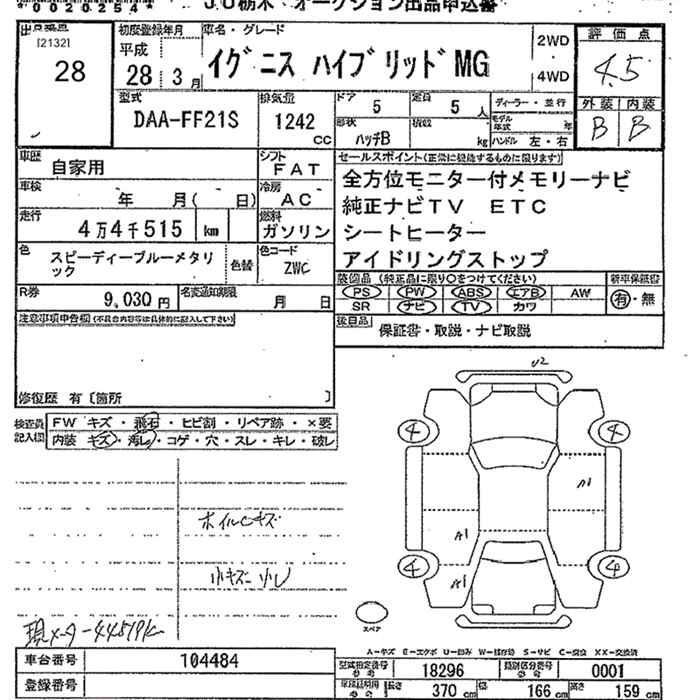 *0020254*
JU栃木 オークション出品申込書
[2132]
28
初度登録年月
平成
28年3月
車名・グレード
イグニス ハイブリッドMG
2WD
4WD
評価点
4.5
外装 内装
B B
型式
DAA-FF21S
排気量
1242
cc
ドア
5
定員
5人
形状
ハッチB
積載
kg
ディーラー・並行
モデル年式 年
ハンドル 左・右
車歴
自家用
シフト
FAT
車検
年 月( 日)
冷房
AC
走行
4万4千515 km
燃料
ガソリン
色
スピーディーブルーメタリ
ック
色替
色コード
ZWC
R券
9,030円
名変通知期限
月 日
セールスポイント(正常に機能するものに限ります)
全方位モニター付メモリーナビ
純正ナビTV ETC
シートヒーター
アイドリングストップ
装備品 (純正品に限り○をつけてください)
PS PW ABS エアB AW
SR ナビ TV カワ
新車保証書
有・無
後日品
保証書・取説・ナビ取説
注意事項申告欄(不具合内容等は具体的に記入して下さい)
修復歴 有〔箇所 〕
検査員
記入欄
FW キズ・飛石・ヒビ割・リペア跡・×要
内装 キズ・汚レ・コゲ・穴・スレ・キレ・破レ
U2
4 4
A1
A1
4 4
A1
ホイルCキズ
小キズ 少し
現メーター44519k
スペア
A−キズ E−エクボ U−凹み W−補修跡 S−サビ C−腐食 XX−交換済
車台番号
104484
登録番号
型式指定番号
参考
18296
類別区分番号
参考
0001
長さ
370 cm
幅
166 cm
高さ
159 cm